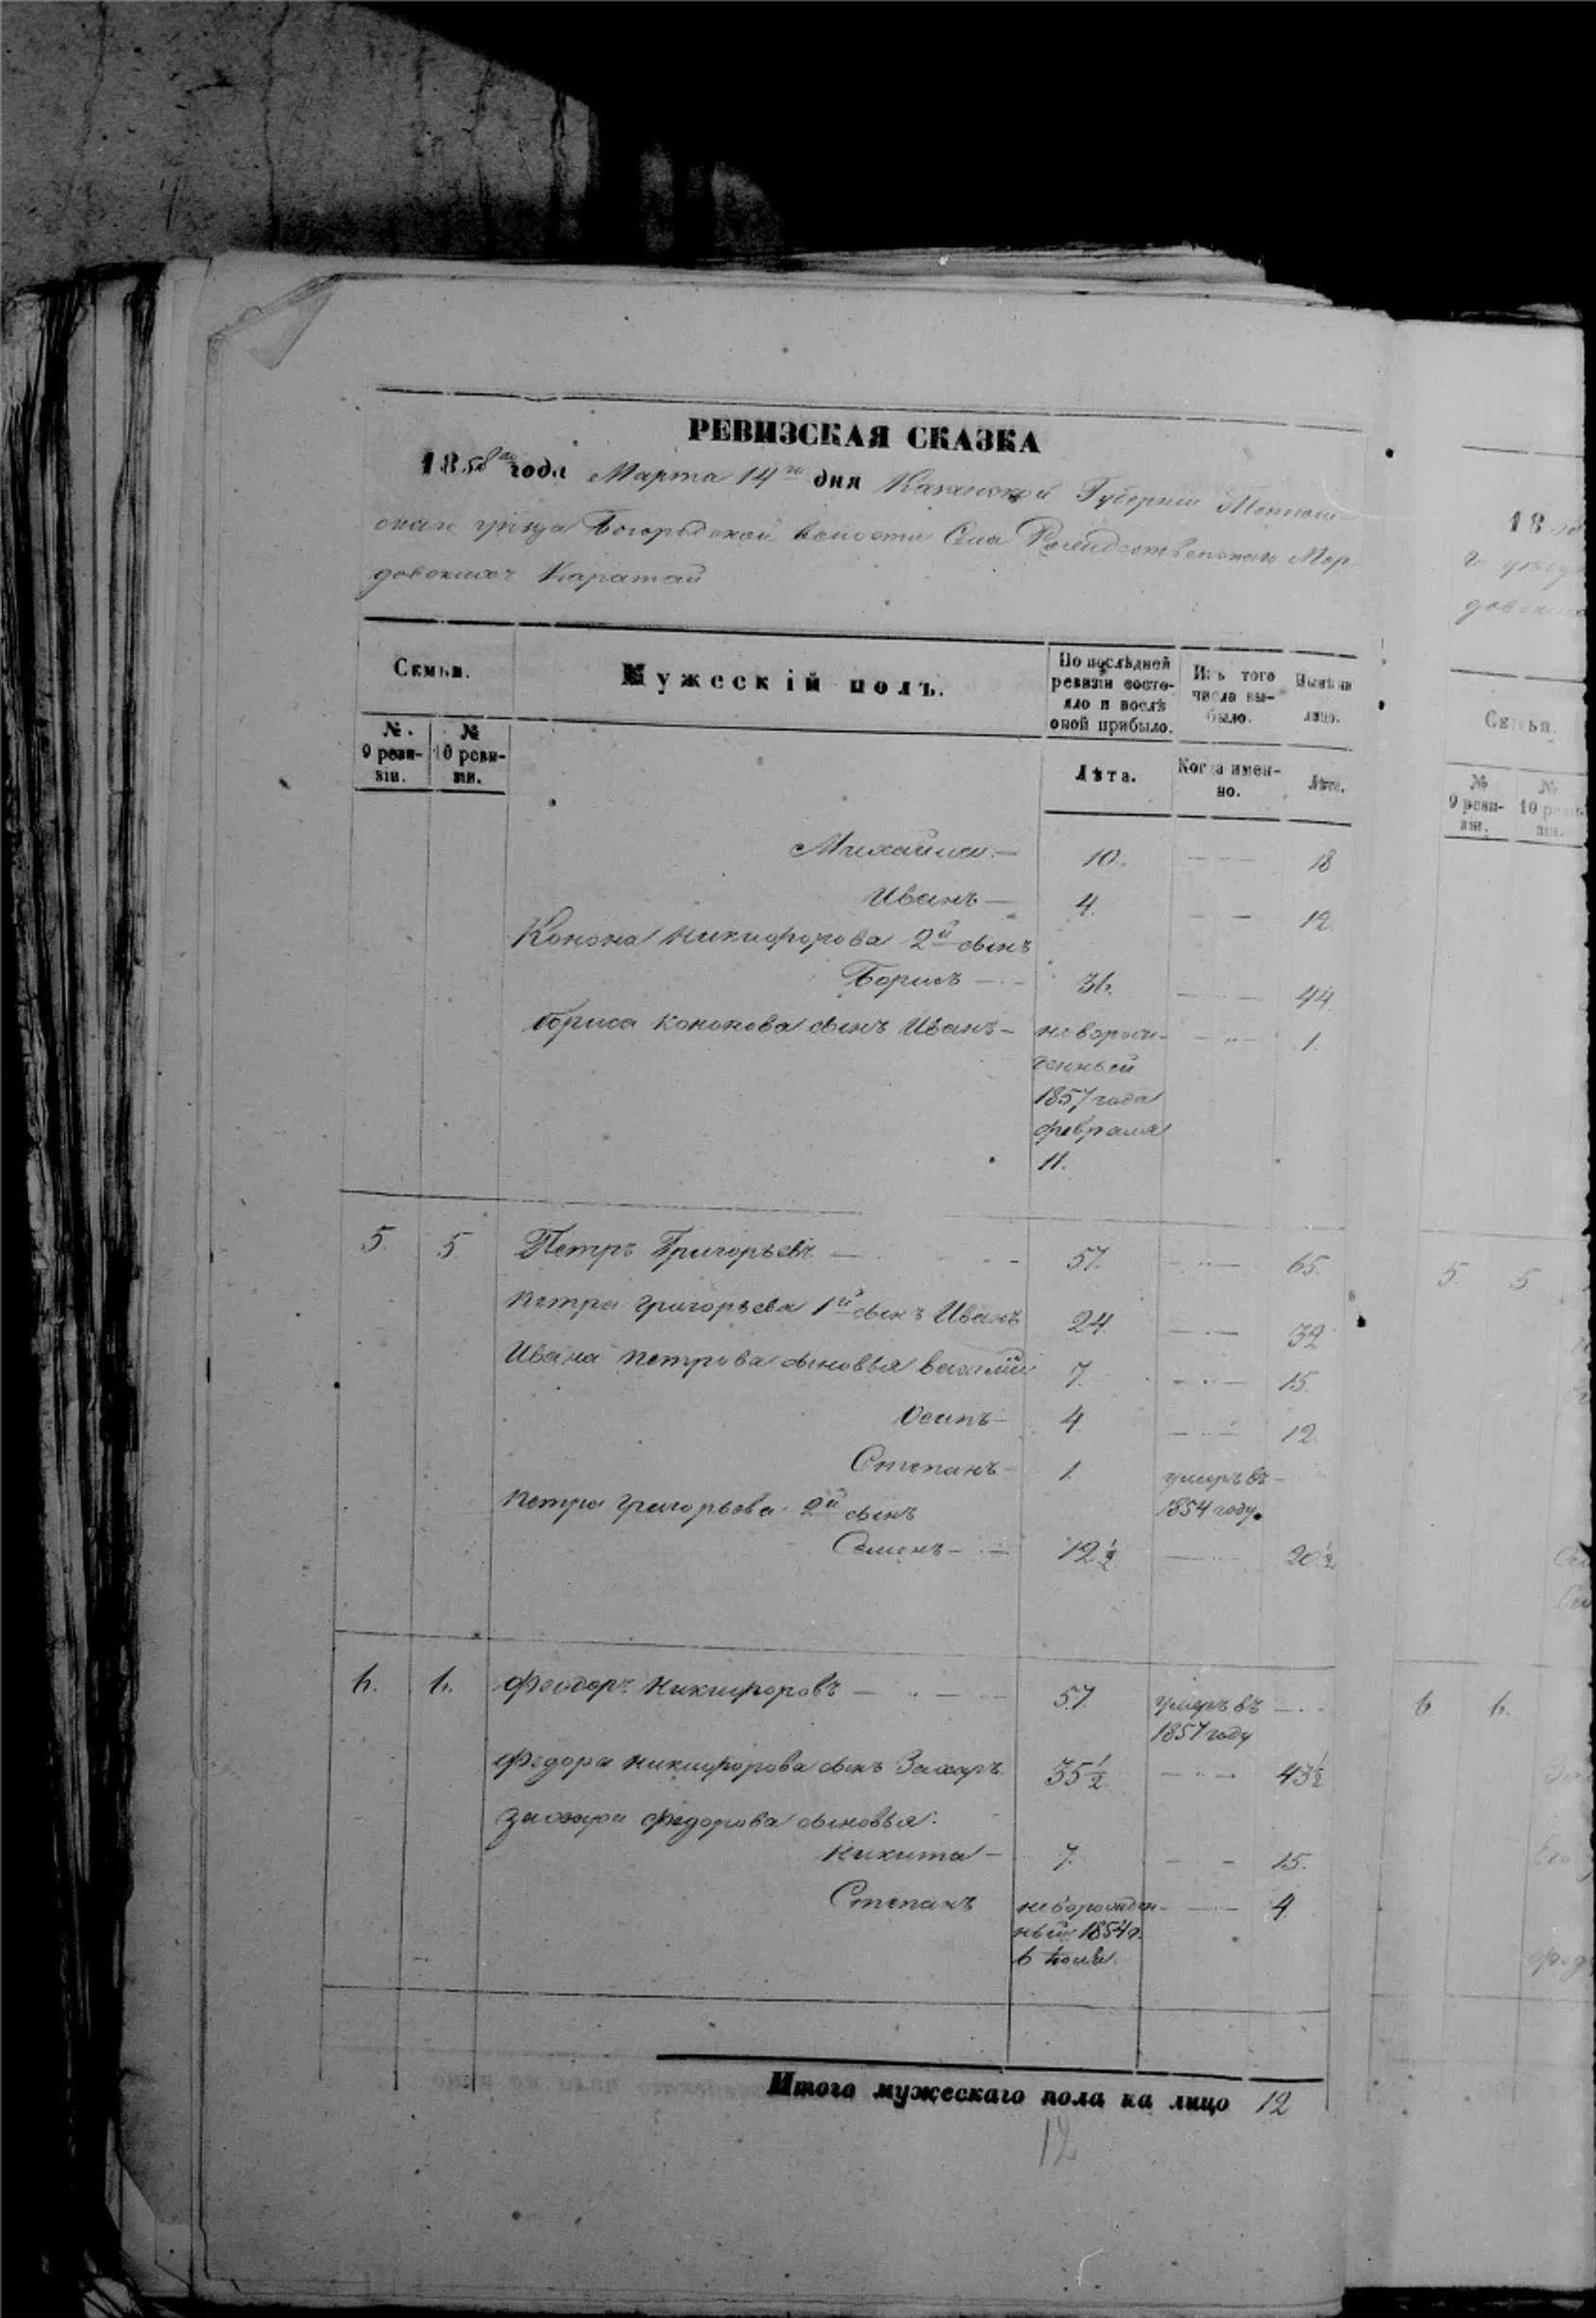 РЕВИЗСКАЯ СКАЗКА
1858го года Марта 14го дня Казанской Губернии Тетюш
скаго уезда Богородской волости Села Рождественскаго Мор
довскихъ Каратай
Семьи.
Мужескій полъ.
По послѣдней ревизіи состояло и послѣ оной прибыло.
Изъ того числа выбыло.
Нынѣ на лицо.
№ 9 ревизіи.
№ 10 ревизіи.
Лѣта.
Когда именно.
Лѣта.
Михайла — 10. — 18
Иванъ — 4. — 12.
Конона Никифорова 2й сынъ
Борисъ — 36. — 44.
Бориса Кононова сынъ Иванъ — новорож- — 1.
денный
1857 года
февраля
11.
5. 5. Петръ Григорьевъ — 57. — 65.
Петра Григорьева 1й сынъ Иванъ 24. — 32
Ивана Петрова сыновья Василій 7. — 15.
Осипъ — 4. — 12.
Степанъ — 1. умеръ въ —
1854 году.
Петра Григорьева 2й сынъ
Семенъ — 12½ — 20½
6. 6. Феодоръ Никифоровъ — 57. умеръ въ —
1857 году
Федора Никифорова сынъ Захаръ 35½ — 43½
Захара Федорова сыновья:
Никита — 7. — 15.
Степанъ новорожден- — 4.
ный 1854 г.
6 Іюля.
Итого мужескаго пола на лицо 12
12
18
Семьи.
№ 9 ревизіи.
№ 10 ревизіи.
5. 5
6 6.